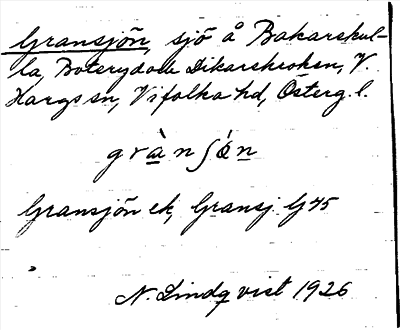 Gransjön, sjö å Bakarskul-
la, Boterydade Dikarskroken, V.
Hargs sn, Vifolka hd, Österg. l.
gràn ʃön
Gransjön ek, Gransj. G 45
N. Lindqvist 1926